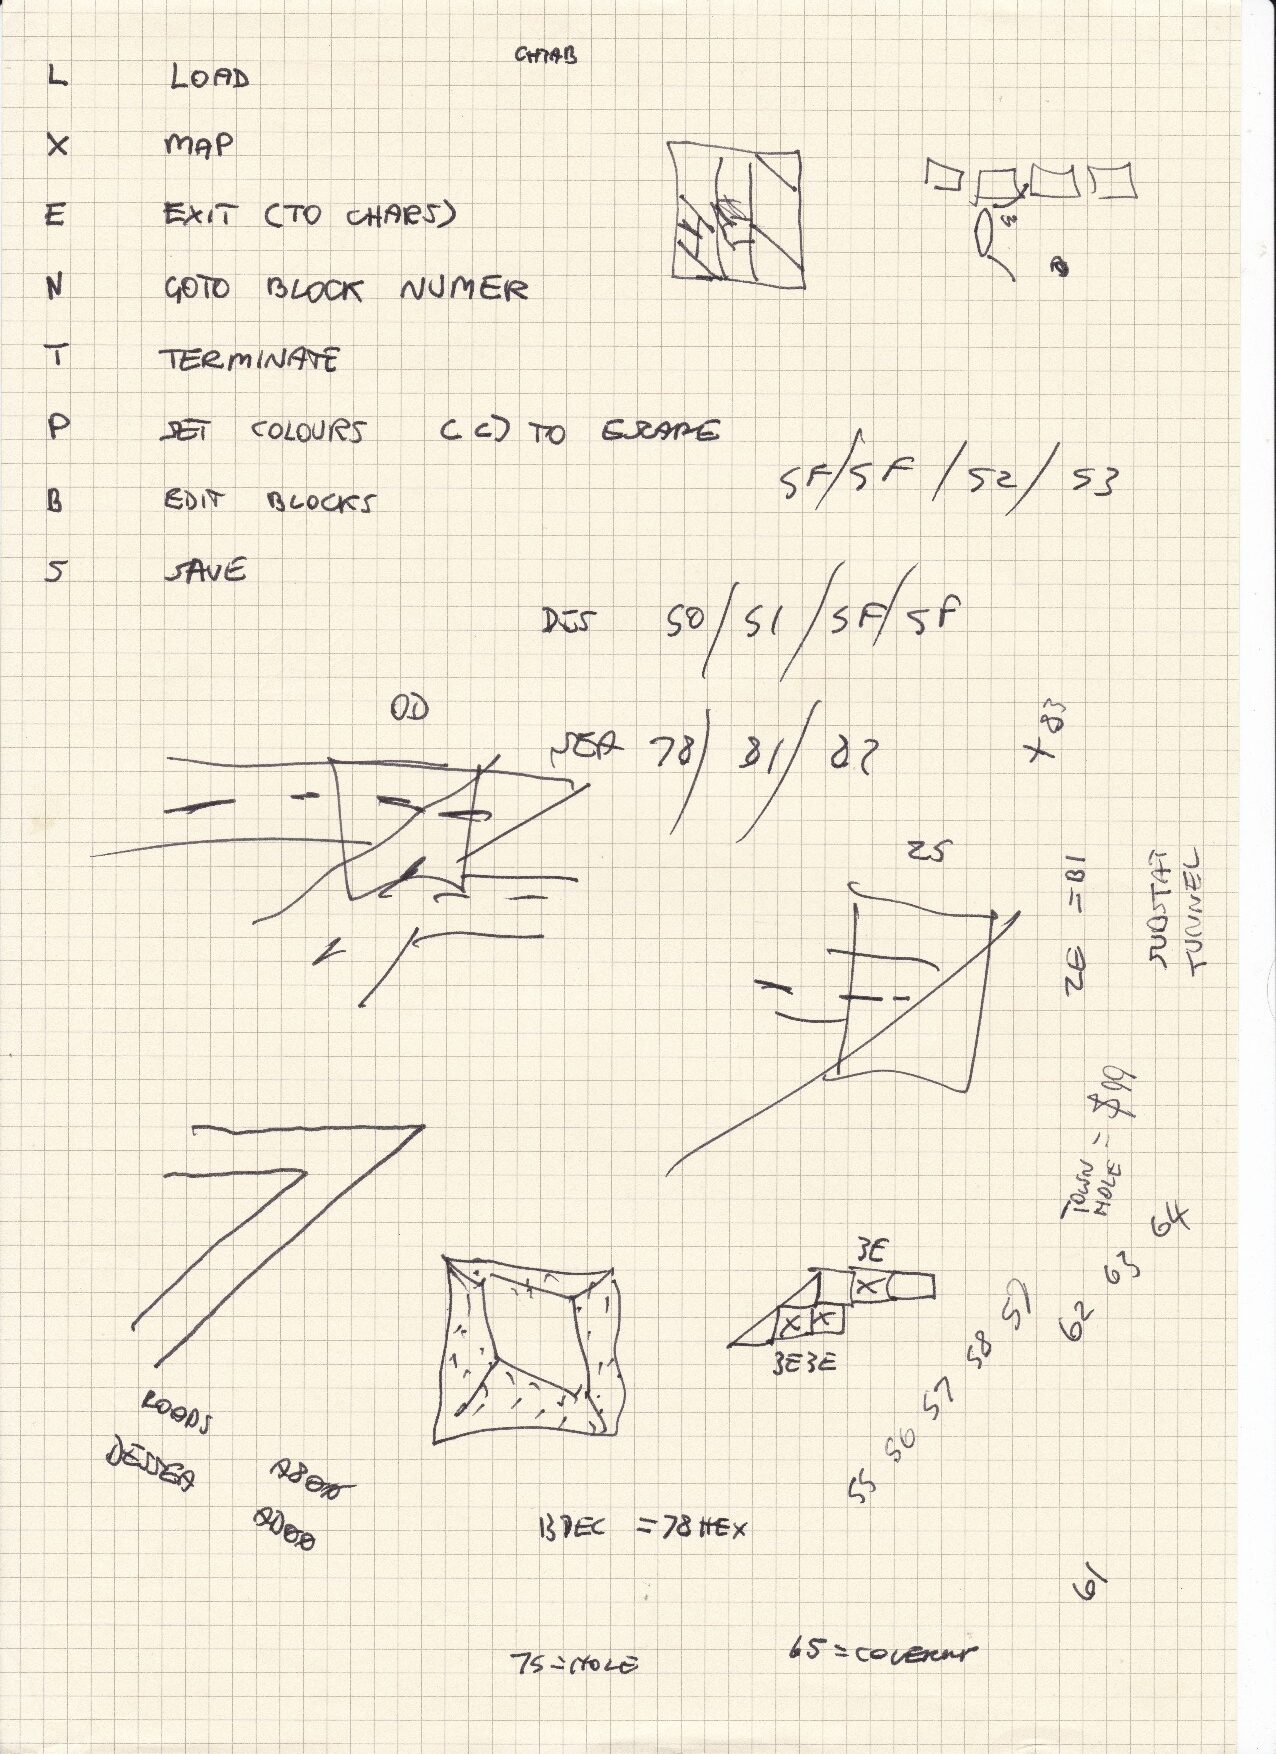 CHTAB
L LOAD
X MAP
E EXIT (TO CHARS)
N GOTO BLOCK NUMER
T TERMINATE
P SET COLOURS (C) TO ESCAPE
B EDIT BLOCKS
S SAVE
5F/5F/52/53
DES 50/51/5F/5F
OD
SEA 78/81/82
X 83
25
2E = B1
SUBSTAT
TUNNEL
TOWN
HOLE = $99
3E
X
X X
3E3E
55 56 57 58 57
61
62 63 64
ROADS
DESSEA
BDEC = 78 HEX
75 = HOLE
65 =